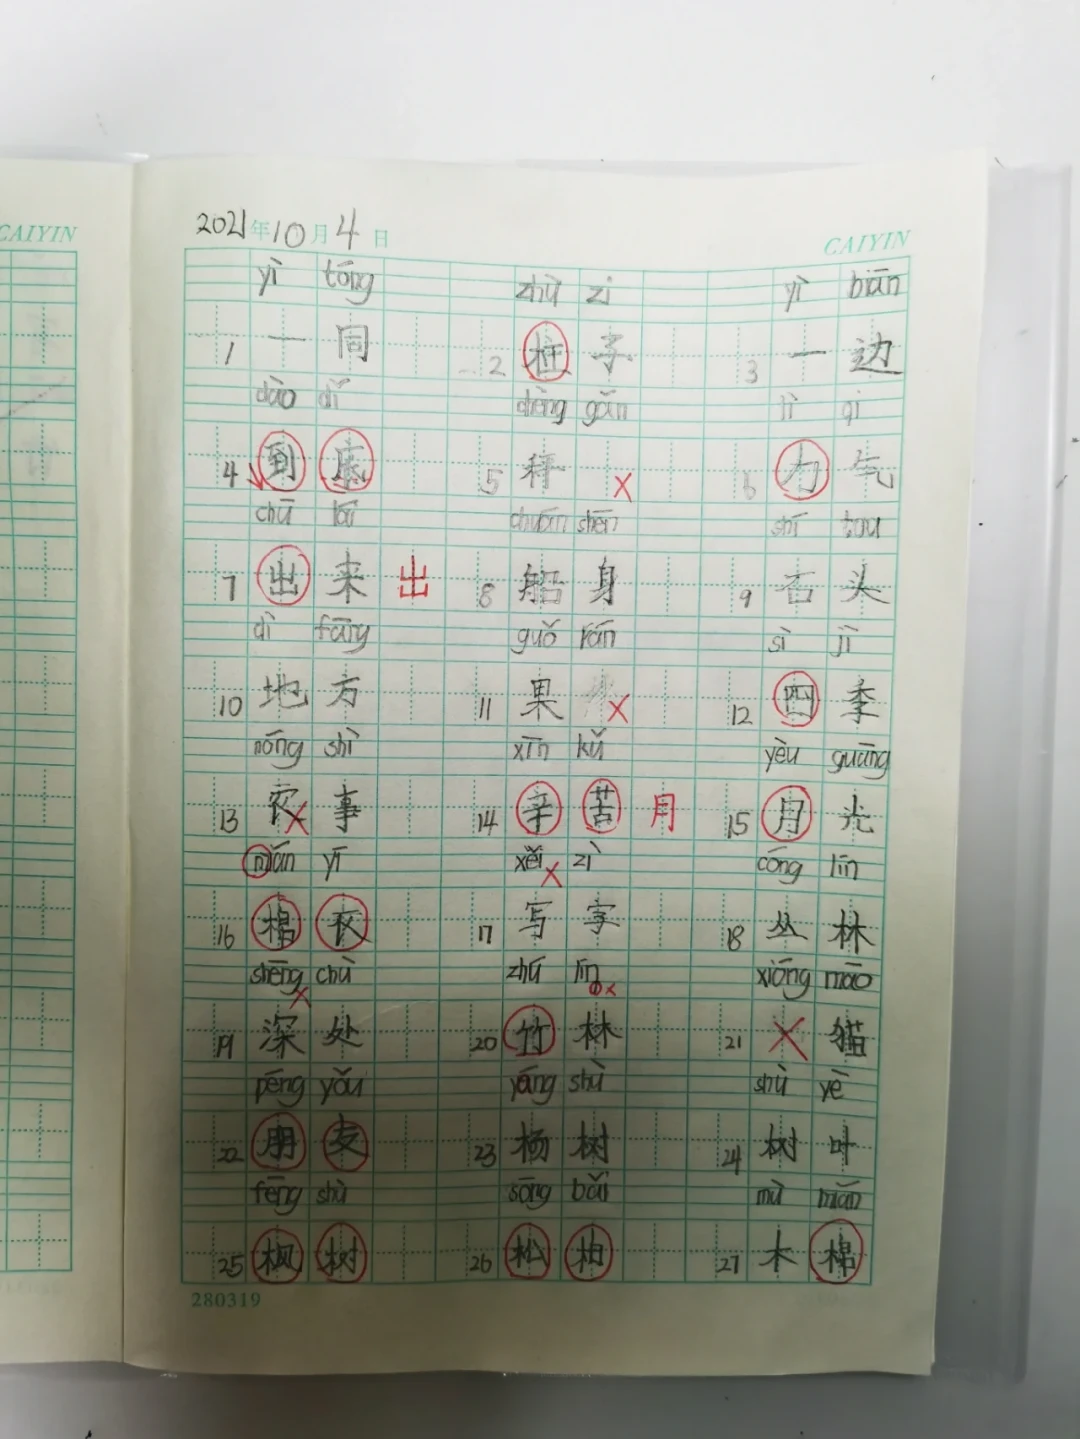 CAIYIN
2021年10月4日 CAIYIN
yì tóng zhù zi yì biān
1 一同 2 柱子 3 一边
dào dǐ chèng gǎn lì qi
4 到底 5 秤 X 6 力气
chū lái chuán shēn shí tou
7 出来 出 8 船身 9 石头
dì fāng guǒ rán sì jì
10 地方 11 果 X 12 四季
nóng shì xīn kǔ yèu guāng
13 农 X 事 14 辛苦 月 15 月光
mián yī xiě X zì cóng lín
16 棉衣 17 写字 18 丛林
shēng X chù zhú lín x xióng māo
19 深处 20 竹林 21 X 猫
péng yǒu yáng shù shù yè
22 朋友 23 杨树 24 树叶
fēng shù sōng bǎi mù mián
25 枫树 26 松柏 27 木棉
280319